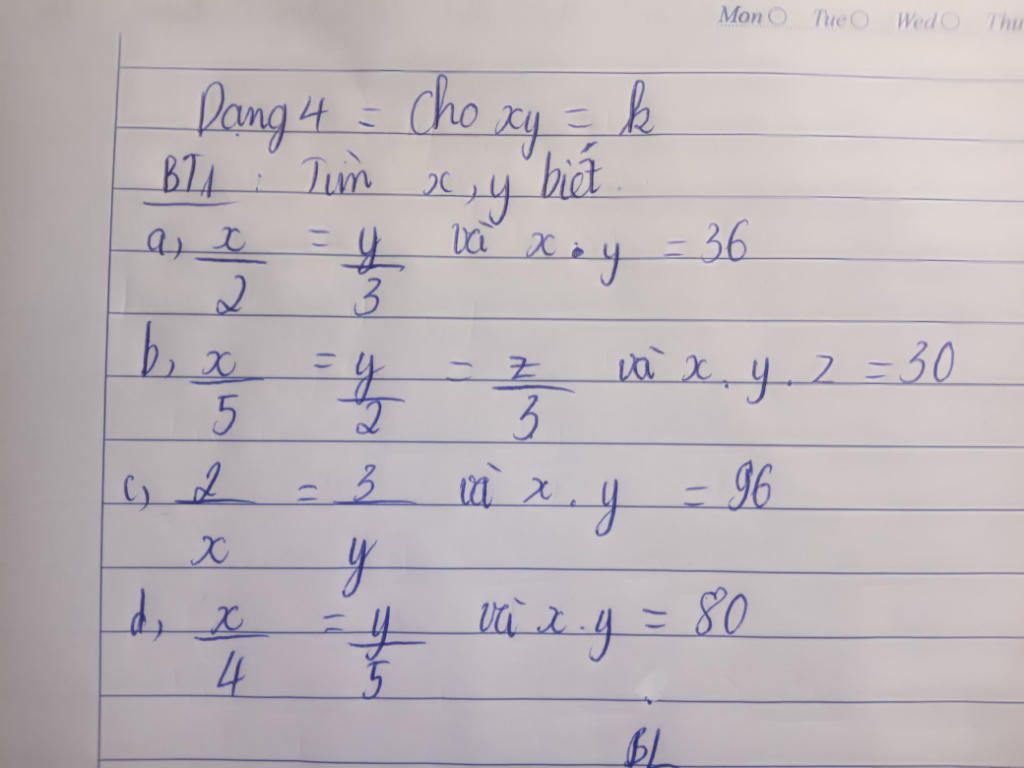 Mon Tue Wed Thu
Dạng 4 = Cho xy = k
BT1 : Tìm x, y biết.
a, x/2 = y/3 và x . y = 36
b, x/5 = y/2 = z/3 và x . y . z = 30
c, 2/x = 3/y và x . y = 96
d, x/4 = y/5 và x . y = 80
BL